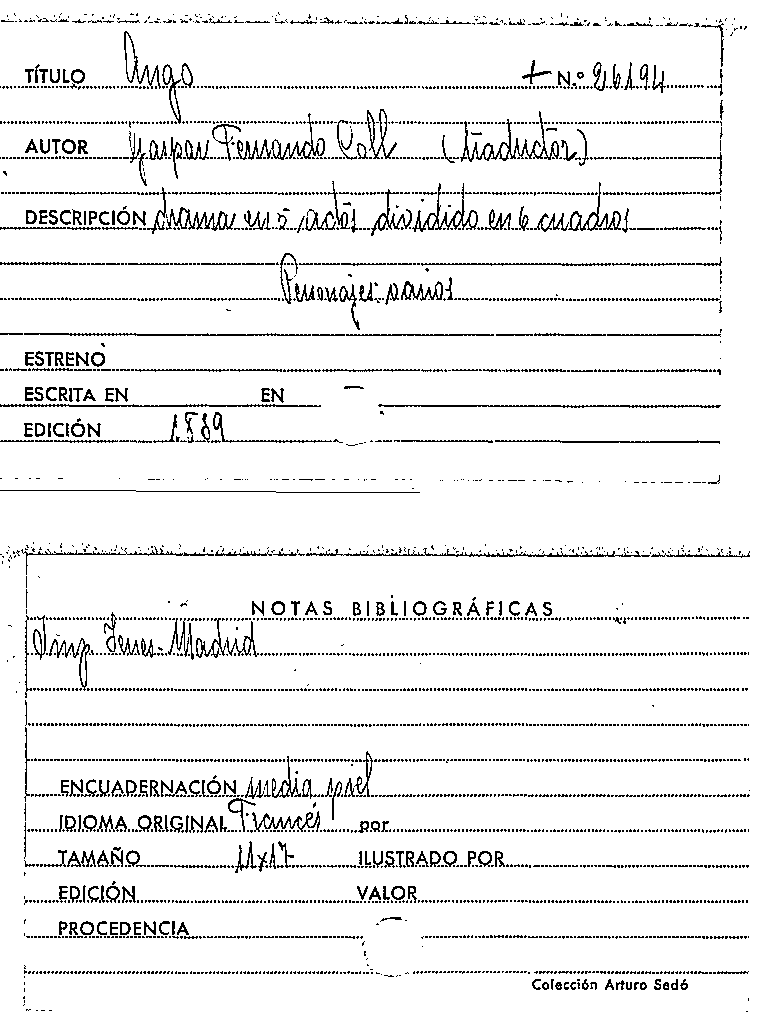 TÍTULO Ango + N.º 26194
AUTOR Gaspar Fernando Coll (traductor)
DESCRIPCIÓN drama en 5 actos dividido en 6 cuadros
Personajes: varios
ESTRENO
ESCRITA EN EN
EDICIÓN 1839
NOTAS BIBLIOGRÁFICAS
Imp. Yenes-Madrid
ENCUADERNACIÓN media piel
IDIOMA ORIGINAL Francés por
TAMAÑO 11x17 ILUSTRADO POR
EDICIÓN VALOR
PROCEDENCIA
Colección Arturo Sedó